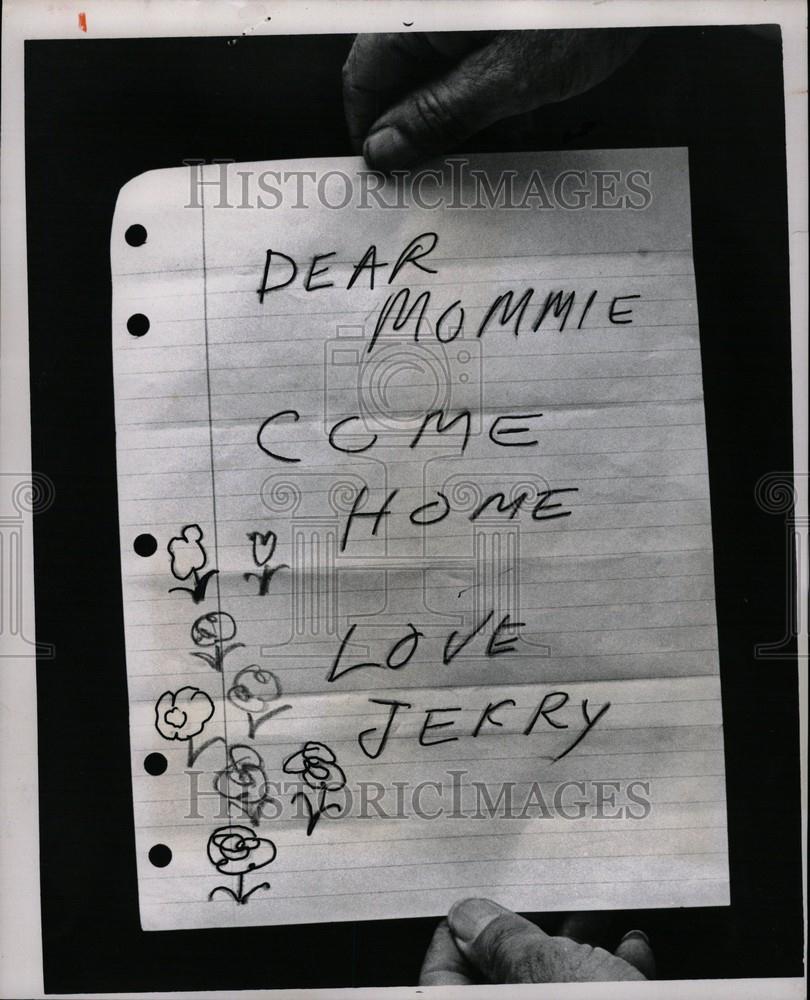 HISTORICIMAGES
DEAR
MOMMIE
COME
HOME
LOVE
JERRY
HISTORICIMAGES